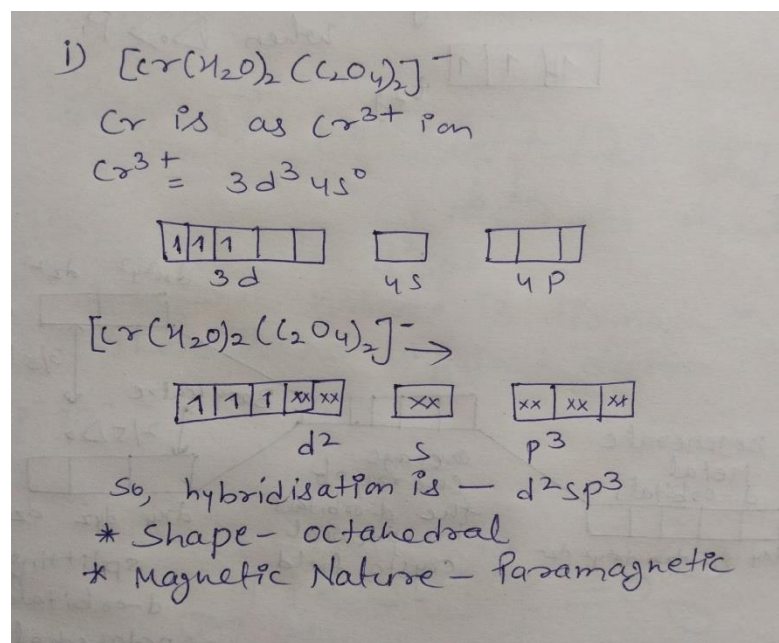 i) [Cr(H₂O)₂(C₂O₄)₂]⁻
Cr is as Cr³⁺ ion
Cr³⁺ = 3d³ 4s⁰
1 1 1
3d 4s 4p
[Cr(H₂O)₂(C₂O₄)₂]⁻ →
1 1 1 xx xx xx xx xx xx
d2 s p3
So, hybridisation is – d²sp³
* Shape – octahedral
* Magnetic Nature – Paramagnetic